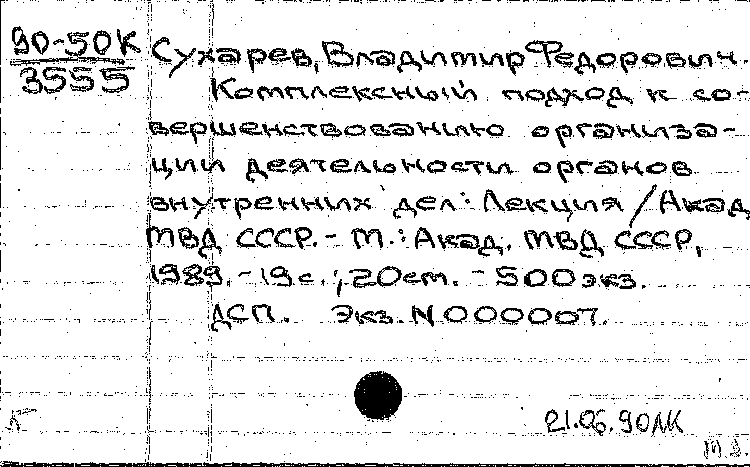 90-50К
3555
Сухарев, Владимир Федорович.
Комплексный подход к со-
вершенствованию организа-
ции деятельности органов
внутренних дел: Лекция / Акад
МВД СССР. - М.: Акад. МВД СССР,
1989. - 19 с.; 20 см. - 500 экз.
ДСП. Экз. N 000007.
21.06.90